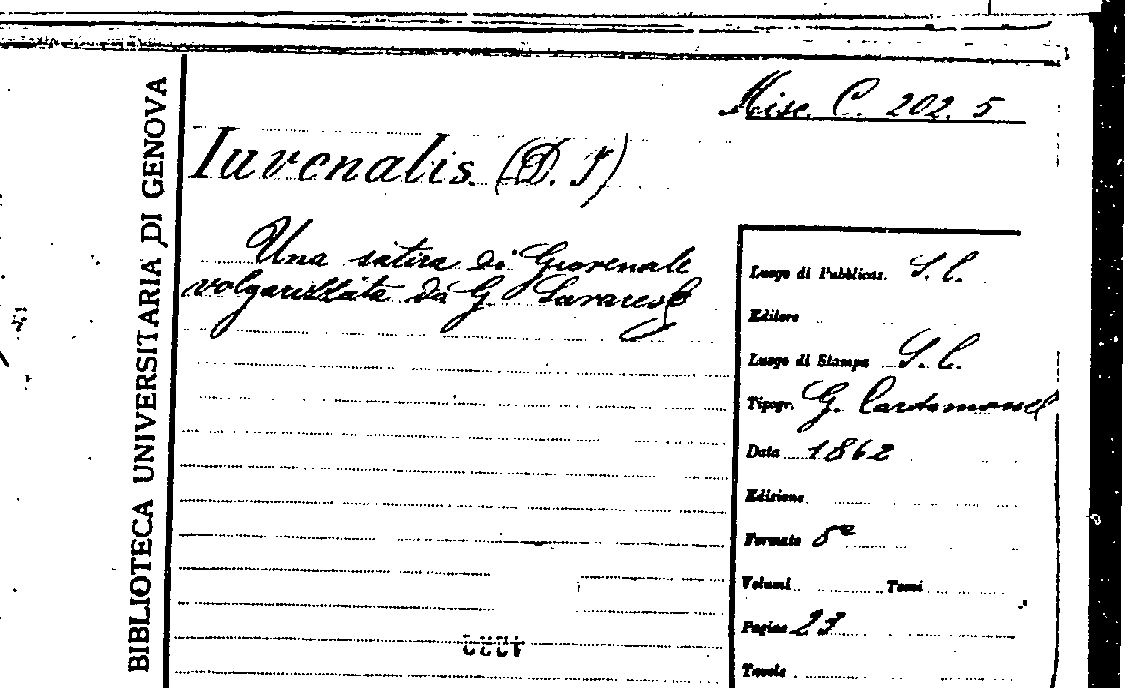 BIBLIOTECA UNIVERSITARIA DI GENOVA
Misc. C. 202. 5
Iuvenalis. (D. I)
Una satira di Giovenale
volgarizzata da G Savarese
Luogo di Pubblicaz. S. l.
Editore
Luogo di Stampa S. l.
Tipogr. G.
Data 1862
Edizione
Formato 8°
Volumi Tomi
Pagine 23
Tavole